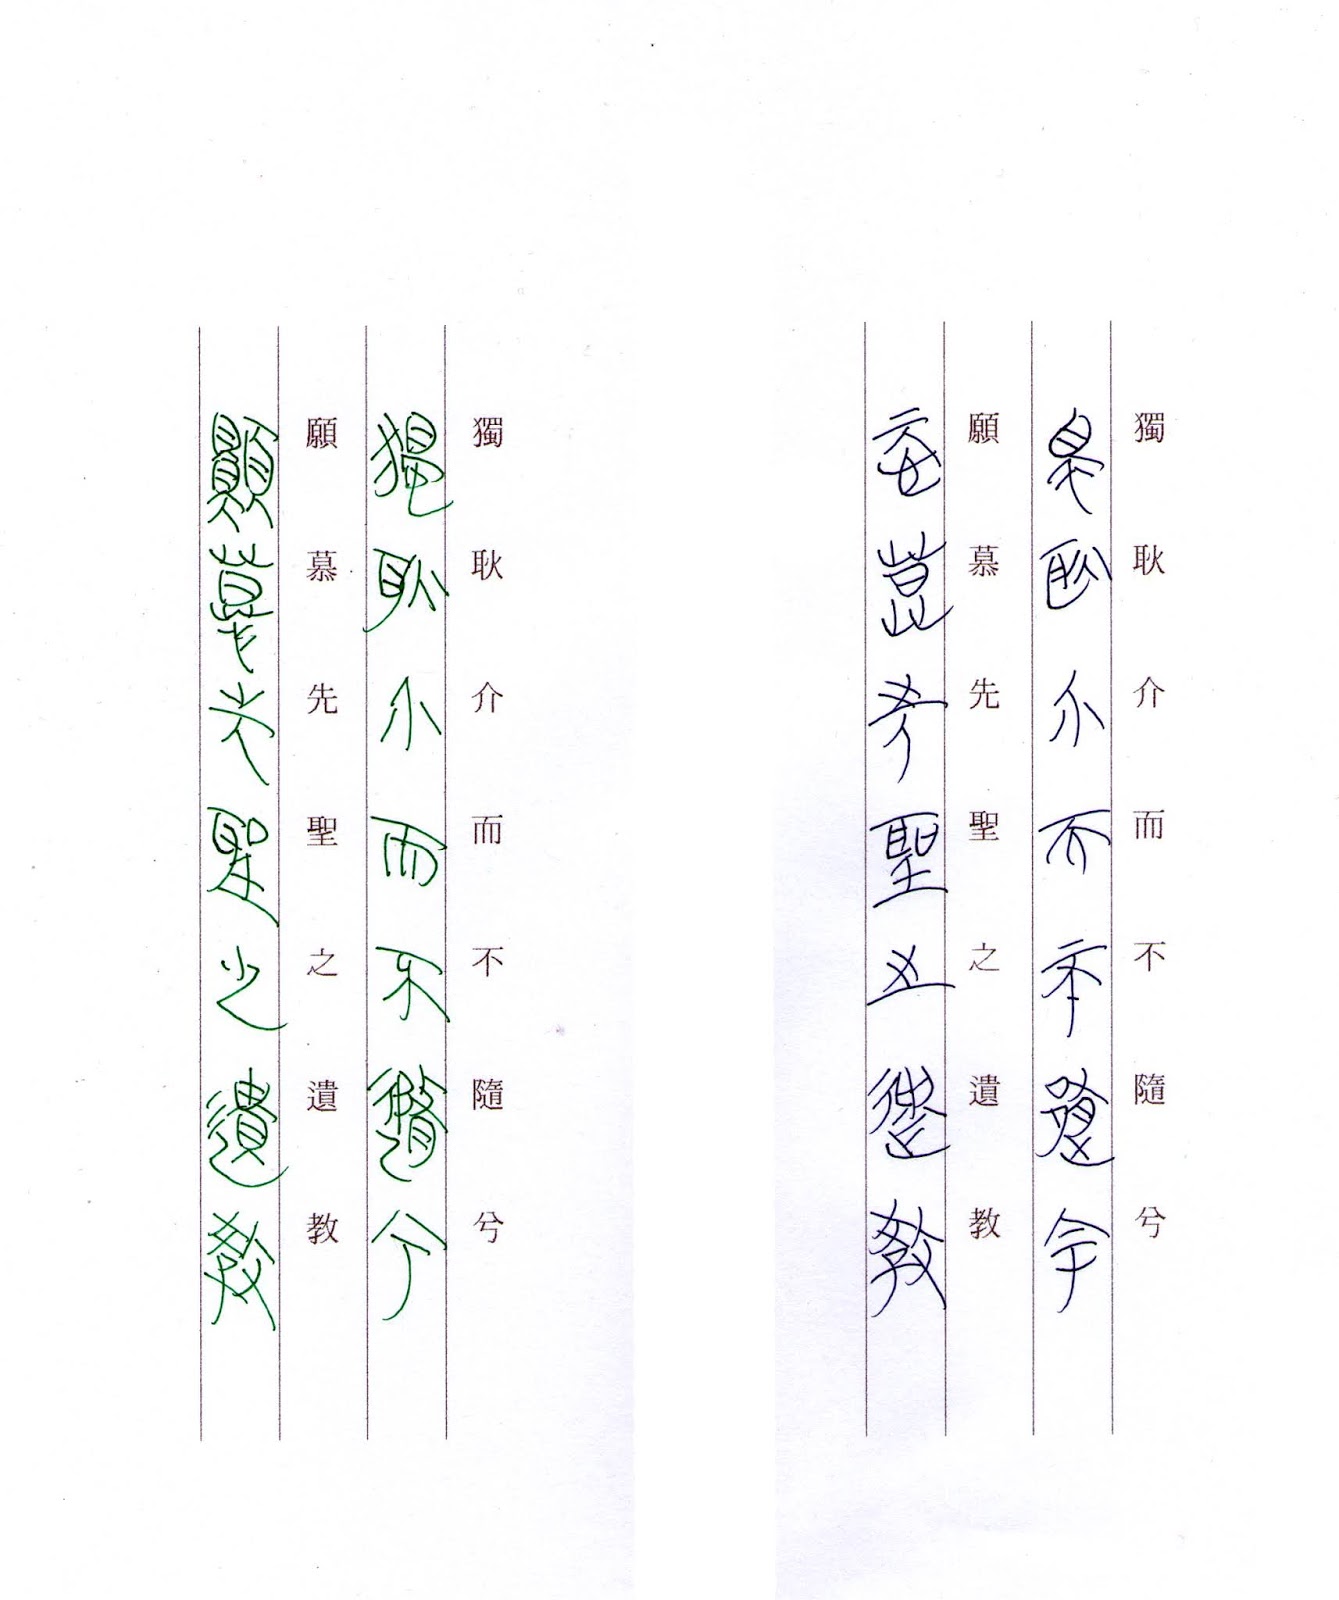 獨耿介而不隨兮
獨耿介而不隨兮
願慕先聖之遺教
願慕先聖之遺教
獨耿介而不隨兮
獨耿介而不隨兮
願慕先聖之遺教
願慕先聖之遺教